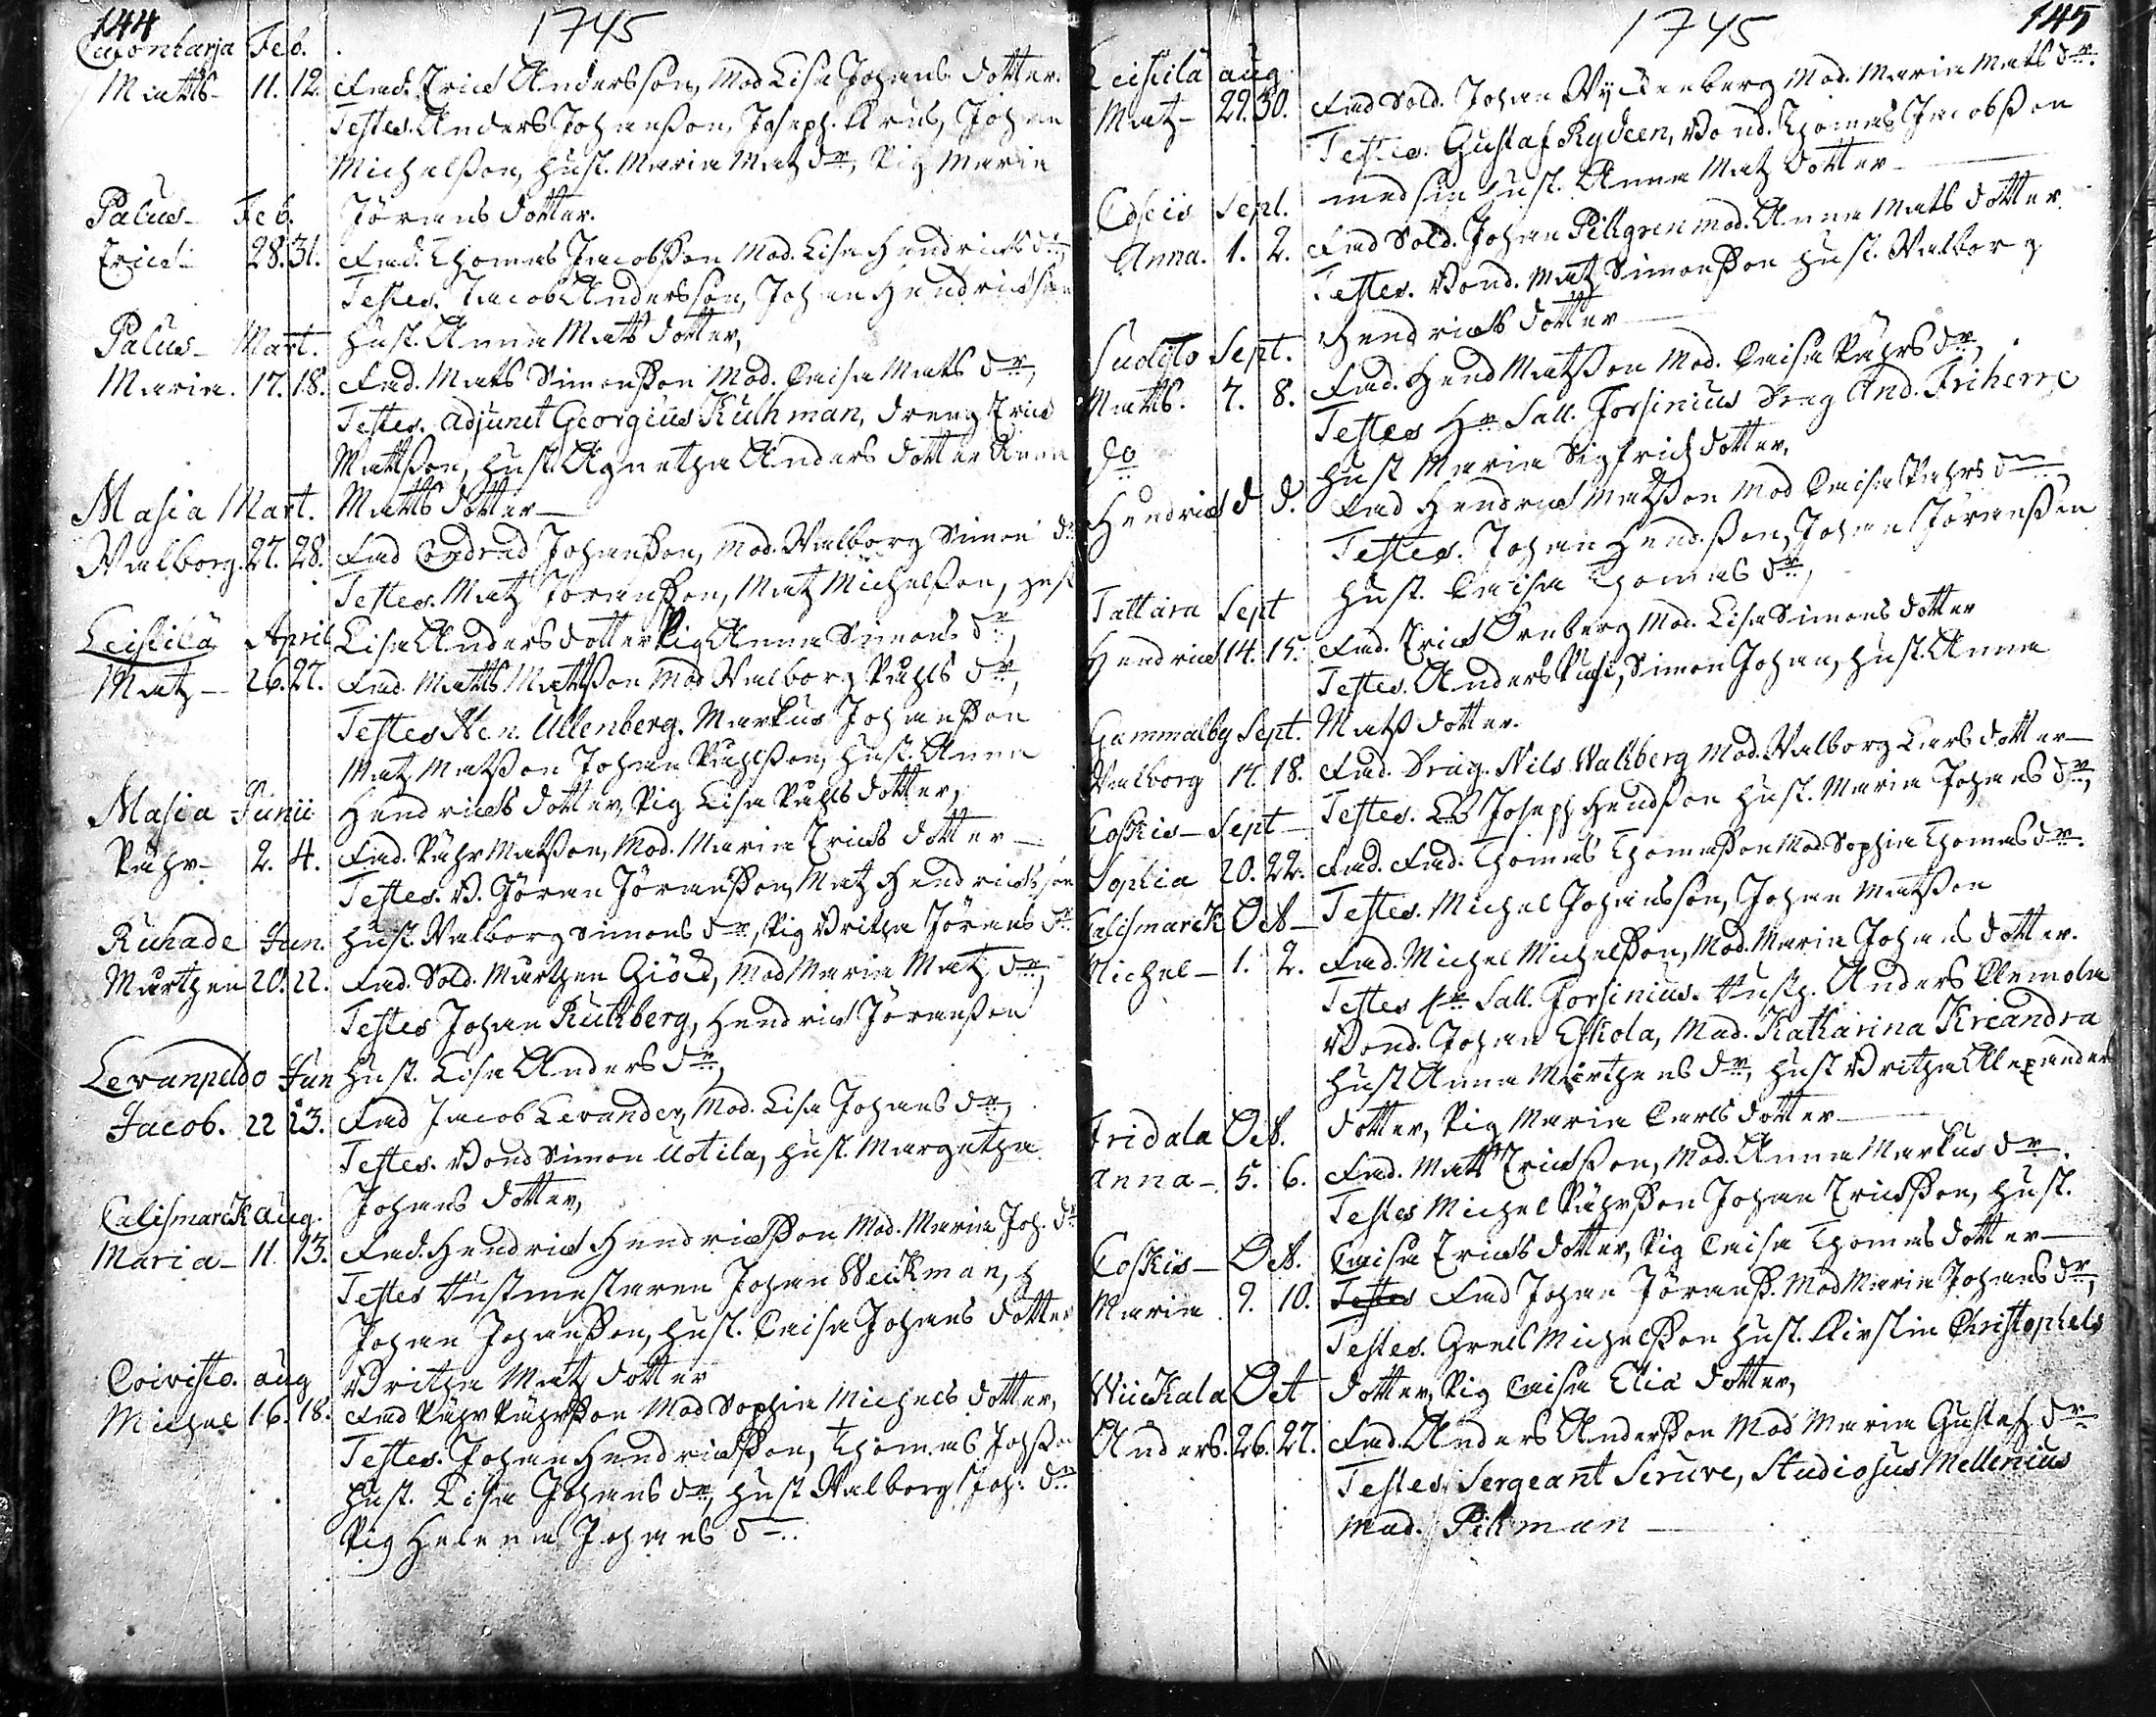 144
1745
Cajonharja Feb.
Matts 11. 12. Fad. Erick Andersson, Mod Lisa Johans dotter.
Testes. Anders Johansson, Joseph Krus, Johan
Michelsson, hust. Maria Matz dr, Pig Maria
Palus Feb. Jörans dotter.
Erick 28. 31. Fad. Thomas Jacobsson Mod. Lisa Hendricks dr,
Testes. Jacob Andersson, Johan Hendricksson
Palus Mart. hust. Anna Mats dotter,
Maria. 17. 18. Fad. Mats Simonsson Mod. Caisa Mats dr,
Testes. Adjunct Georgius Kuthman, dreng Erick
Mattsson, hust. Agnetha Anders dotter Anna
Masia Mart. Matts dotter
Walborg. 27. 28. Fad Condrad Johansson, Mod. Walborg Simons dr
Testes. Matz Jöransson, Matz Michelsson, hust
Leistilä April Lisa Anders dotter Pig Anna Simons dr,
Matz 26. 27. Fad. Matts Mattsson Mod Walborg Påhls dr,
Testes Hen. Ullenberg. Markus Johansson
Matz Matzson Johan Påhlsson, hust. Anna
Masia Junii Hendricks dotter, Pig Lisa Påhls dotter,
Pähr 2. 4. Fad. Pähr Matsson, Mod. Maria Ericks dotter
Testes. B. Jöran Jöransson, Matz Hendricksson
Ruhade Jun. hust. Walborg Simons dr, Pig Britha Jörans dr
Mårthen 20. 22. Fad. Sold. Mårthen Giöck, Mod Maria Matz dr,
Testes Johan Kuthberg, Hendrick Jöransson
Levanpeldo Jun hust. Lisa Anders dr,
Jacob. 22 23. Fad Jacob Levander, Mod. Lisa Johans dr,
Testes. Bond Simon Uotila, hust. Margetha
Calismarck aug. Johans dotter,
Maria 11. 13. Fad. Hendrick Hendricksson Mod. Maria Joh. dr
Testes Rustmestaren Johan Weckman,
Johan Johansson, hust. Caisa Johans dotter
Coivisto. aug Britha Matz dotter
Michel 16. 18. Fad Pähr Pährsson Mod Sophia Michels dotter,
Testes. Johan Hendricksson, Thomas Johsson
hust. Lisa Johans dr, hust Walborg Joh: dr
Pig Helena Johans dr.
145
1745
Leistilä aug.
Matz 29. 30. Fad Sold. Johan Nyckenberg Mod. Maria Mats dr.
Testes. Gustaf Rydeen, Bond. Thomas Jacobsson
med sin hust. Anna Matz dotter
Coskis Sept.
Anna. 1. 2. Fad Sold. Johan Pillgren mod. Anna Mats dotter.
Testes. Bond. Matz Simonsson hust. Walborg
Hendricks dotter
Suckilo Sept.
Matts. 7. 8. Fad. Hend Matsson Mod. Caisa Pährs dr,
Testes Hr Sall. Forsinius Drag And. Friherre
do hust Maria Sigfrids dotter,
Hendrick d d. Fad Hendrick Matsson Mod Caisa Pährs dr
Testes. Johan Hendsson, Johan Jöransson
hust. Caisa Thomas dr,
Tattara Sept
Hendrick 14. 15. Fad. Erick Örnberg Mod. Lisa Simons dotter
Testes. Anders Pasi, Simon Johan, hust. Anna
Gammalby Sept. Mats dotter.
Walborg 17. 18. Fad. Drag. Nils Wahlberg Mod. Walborg Lars dotter
Testes. Joseph Hendsson hust. Maria Johans dr,
Coskis Sept
Sophia 20. 22. Fad. Fad. Thomas Thomasson Mod Sophia Thomas dr.
Testes. Michel Johansson, Johan Matsson
Calismarck Oct
Michel 1. 2. Fad. Michel Michelsson, Mod. Maria Johans dotter.
Testes Hr Sall. Forsinius. Anders Alemola
Bond. Johan Eskola, Mad. Katharina Kreandra
hust Anna Mårthens dr, hust Britha Alexanders
Fridala Oct. dotter, Pig Maria Carls dotter
Anna 5. 6. Fad. Matts Ericksson, Mod. Anna Markus dr.
Testes Michel Pährsson Johan Ericksson, hust.
Coskis Oct. Caisa Ericks dotter, Pig Caisa Thomas dotter
Maria 9. 10. Testes Fad Johan Jöranss. Mod Maria Johans dr,
Testes. Grels Michelsson hust. Kirstin Christophels
Wiickala Oct dotter, Pig Caisa Elia dotter,
Anders. 26. 27. Fad. Anders Andersson Mod Maria Gustaf dr
Testes. Sergeant Scruve, Studiosus Mellenius
Mad. Pihlman